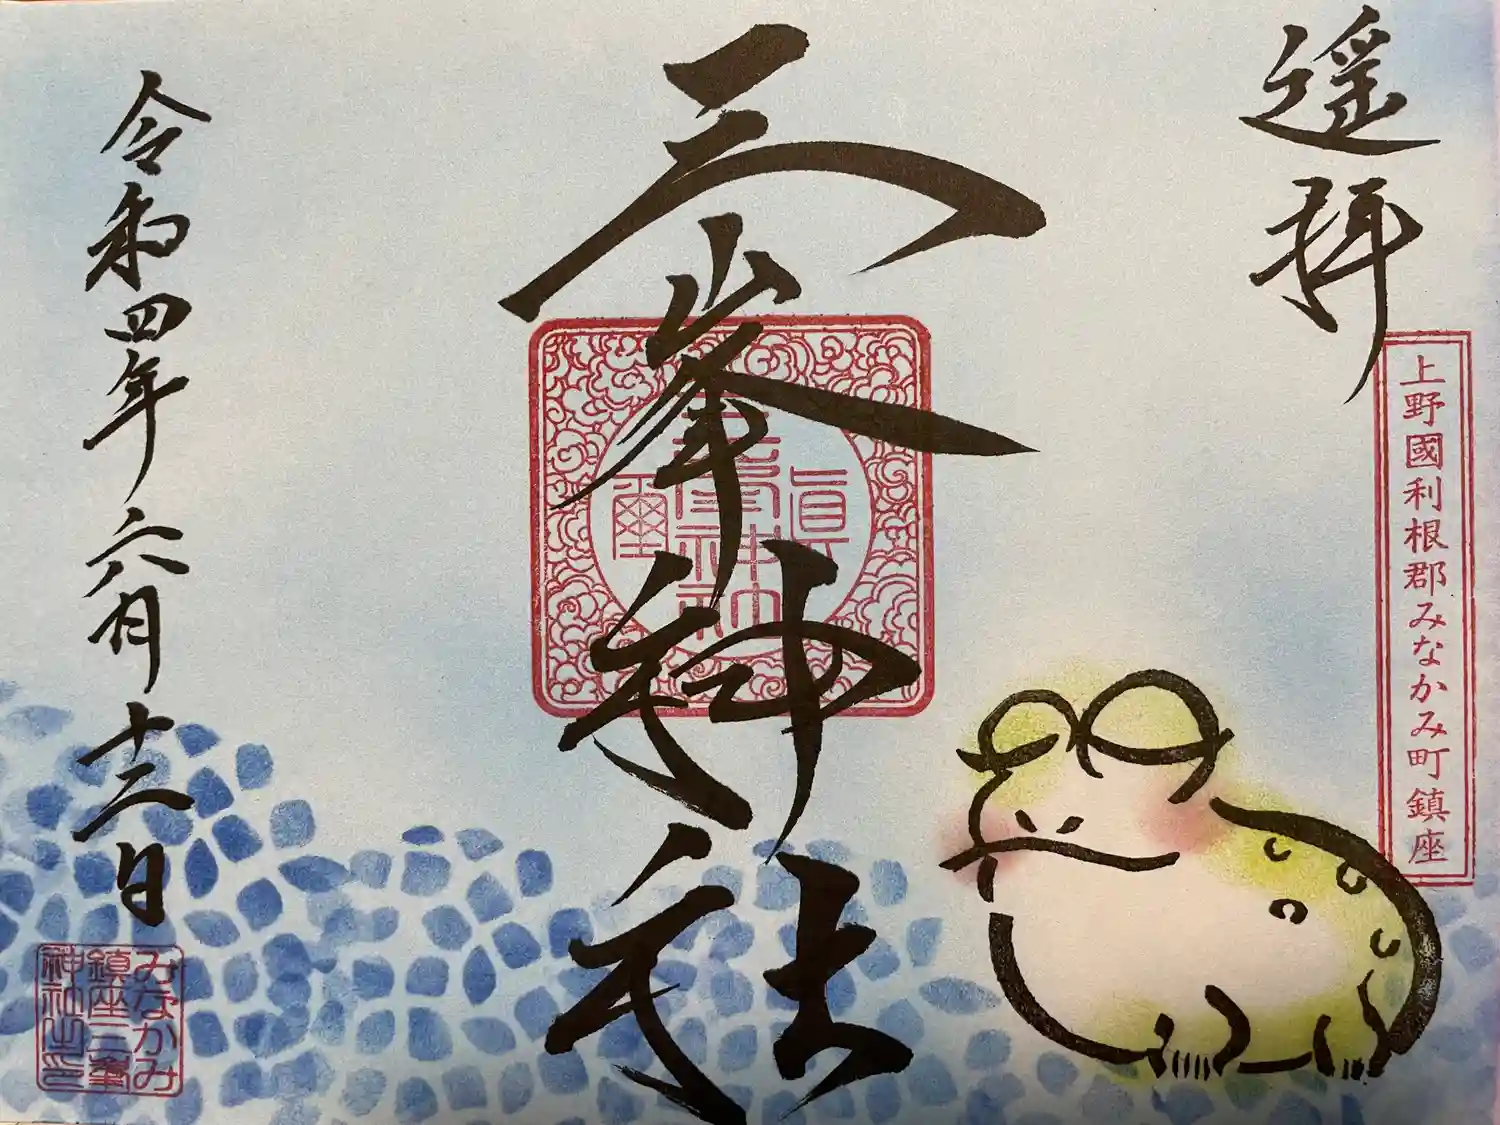 遥拝
上野國利根郡みなかみ町鎮座
三峯神社
令和四年六月十二日
みなかみ
鎮座三峯
神社之印